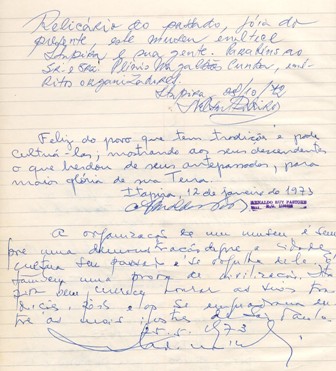 Relicário do passado, joia do
presente, este museu enaltece
Itapira e sua gente. Parabéns ao
Sr. e Sra. Plínio Magalhães Cunha, emé-
ritos organizadores.
Itapira, 28/10/72

Feliz do povo que tem tradição e pode
cultuá-las, mostrando aos seus descendentes
o que herdou de seus antepassados, para
maior glória de sua Terra.
Itapira, 12 de janeiro de 1973
RENALDO RUY PASTORE

A organização de um museu é sem
pre uma demonstração que a cidade
cultua seu passado e se orgulha dele. É
também uma prova de civilização.
bem merece
e se
tre as mais de São Paulo.
25.5.1973